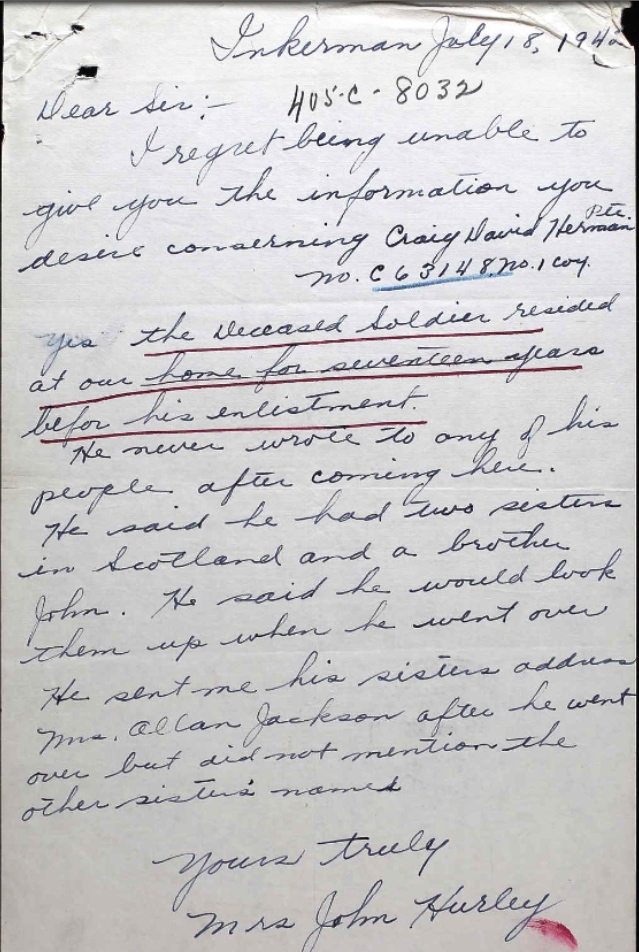 Inkerman July 18, 194
Dear Sir:-
405-C-8032
I regret being unable to
give you the information you
desire conserning Craig David Herman Pte.
no. C 63148. no. 1 coy.
yes the Deceased Soldier resided
at our home for seventeen years
befor his enlistment.
He never wrote to any of his
people after coming here.
He said he had two sisters
in Scotland and a brother
John. He said he would look
them up when he went over
He sent me his sisters address
Mrs. Allan Jackson after he went
over but did not mention the
other sister's name
Yours truly
Mrs John Hurley